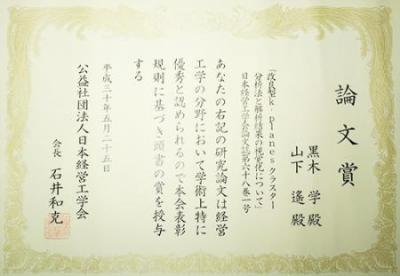 論文賞
黒木 学 殿
山下 遙 殿
「改良型k-planesクラスター
分析法と解析結果の視覚化について」
日本経営工学会論文誌第六十八巻一号
あなたの右記の研究論文は経営
工学の分野において学術上特に
優秀と認められるので本会表彰
規則に基づき頭書の賞を授与
する
平成三十年五月二十五日
公益社団法人日本経営工学会
会長 石井和克